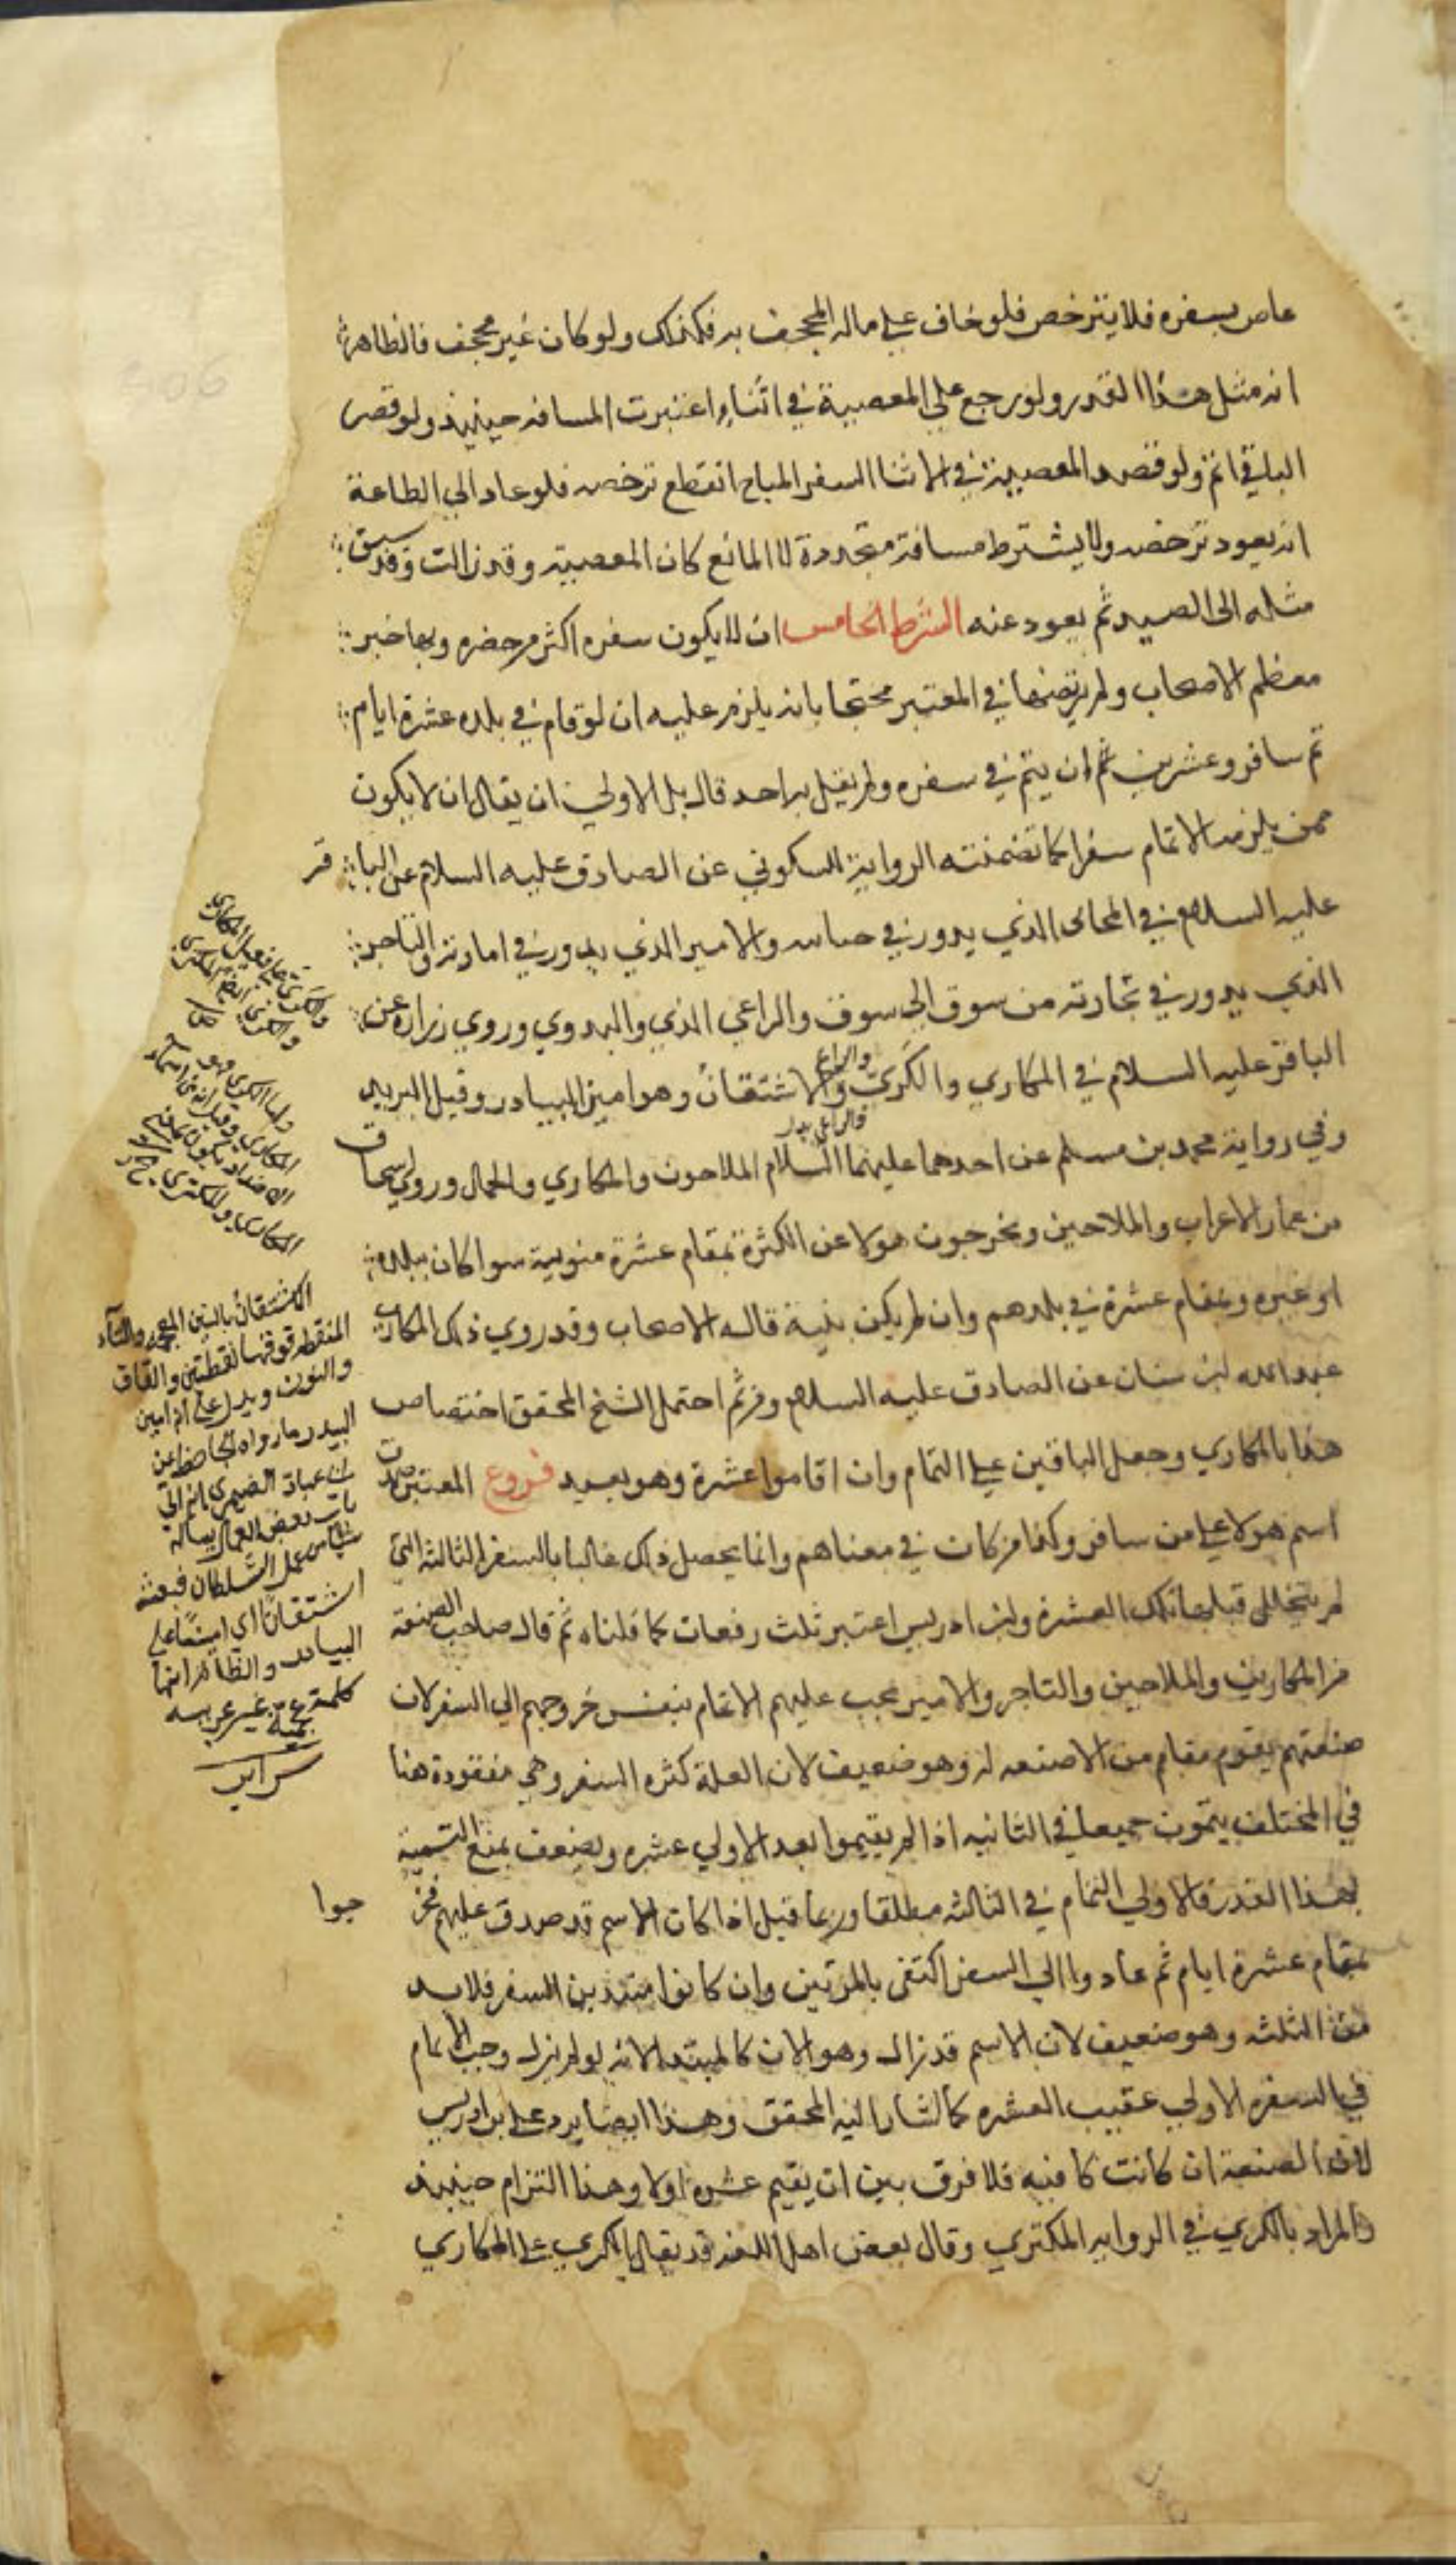 عاص بسفره فلا يترخص فلو خاف على ماله المجحف به فكذلك ولو كان غير مجحف فالظاهر
انه مثل هذا القدر ولو رجع على المعصية في اثناء اعتبرت المسافه حينيذ ولو قصر
الباقي اتم ولو قصد المعصية في الاثنا السفر المباح انقطع ترخصه فلو عاد الي الطاعة
انه يعود ترخصه ولا يشترط مسافة متجددة لا المانع كان المعصية وقد زالت وقد سبق
مثله الى الصيد ثم يعود عنه الشرط الخامس ان لا يكون سفره اكثر من حضره وبها خبر
معظم الاصحاب ولم يرتضها في المعتبر محتجا بانه يلزم عليه ان لو قام في بلده عشرة ايام
ثم سافر وعشرين ثم ان يتم في سفره ولم يقل به احد قال بل الاولي ان يقال ان لا يكون
ممن يلزمه الاتمام سفرا كما تضمنته الرواية السكوني عن الصادق عليه السلام عن البا قر
عليه السلام في المحابى الذي يدور في حبايته والامير الذي يدور في امارته والتاجر
الذي يدور في تجارته من سوق الى سوق والراعي الذي والبدوي وروي زراره عن
الباقر عليه السلام في المكاري والكري والراعي والاشتقان وهو امين البيادر وقيل البريد
وفي رواية محمد بن مسلم عن احدهما عليهما السلام الملاحون والمكاري والجمال وروي اسحاق
بن عمار الاعراب والملاحين ويخرجون هولا عن الكثرة بمقام عشرة منويه سوا كان ببلده
او غيره وبمقام عشرة في بلدهم وان لم يكن بنية قاله الاصحاب وقد روي ذلك المكاري
عبد الله بن سنان عن الصادق عليه السلام ومن ثم احتمل الشيخ المحقق اختصاص
هذا بالمكاري وجعل الباقين على التمام وان اقاموا عشرة وهو بعيد فروع المعتبر صدق
اسم هولا على من سافر وكذا من كان في معناهم وانما يحصل ذلك غالبا بالسفر الثالثه التي
لم يتخلل قبلها تلك العشرة وابن ادريس اعتبر ثلث دفعات كما قلناه ثم قال صاحب الصنعة
من المكارين والملاحين والتاجر والامير يجب عليهم الاتمام بنفس خروجهم الي السفر لان
صنعتهم يقوم مقام من لا صنعه له وهو ضعيف لان العلة كثره السفر وهي مفقودة هنا
في المختلف يتمون جميعا في الثانيه اذا لم يقيموا بعد الاولي عشره ويضعف بمنع التسمية
بهذا القدر فالاولي التمام في الثالثه مطلقا وربما قيل اذا كان الاسم قد صدق عليهم فخر جوا
بمقام عشرة ايام ثم عادوا الي السفر اكتفى بالمرتين وان كانوا مبتدئين السفر فلا بد
من الثلثه وهو ضعيف لان الاسم قد زال وهو الان كالمبتدا لانه لو لم يزل وجب الاتمام
في السفره الاولي عقيب العشره كما اشار اليه المحقق وهذا ايضا يرد على بن ادريس
لان الصنعة ان كانت كافيه فلا فرق بين ان يقيم عشره اولا وهذا التزام حينيذ
والمراد بالكري في الروايه المكتري وقال بعض اهل اللغه قد يقال الكري على المكاري
الاشتقان بالشين المعجمه والتاء
المنقطه فوقها نقطتين والقاف
والنون ويدل على انه امين
البيدر ما رواه الجاحظ عن
الصيمري انه اتي
باب بعض العمال يساله
عمل السلطان فبعثه
اشتقانا اي امينا على
البيادر والظاهر انها
كلمة عجمية غير عربيه